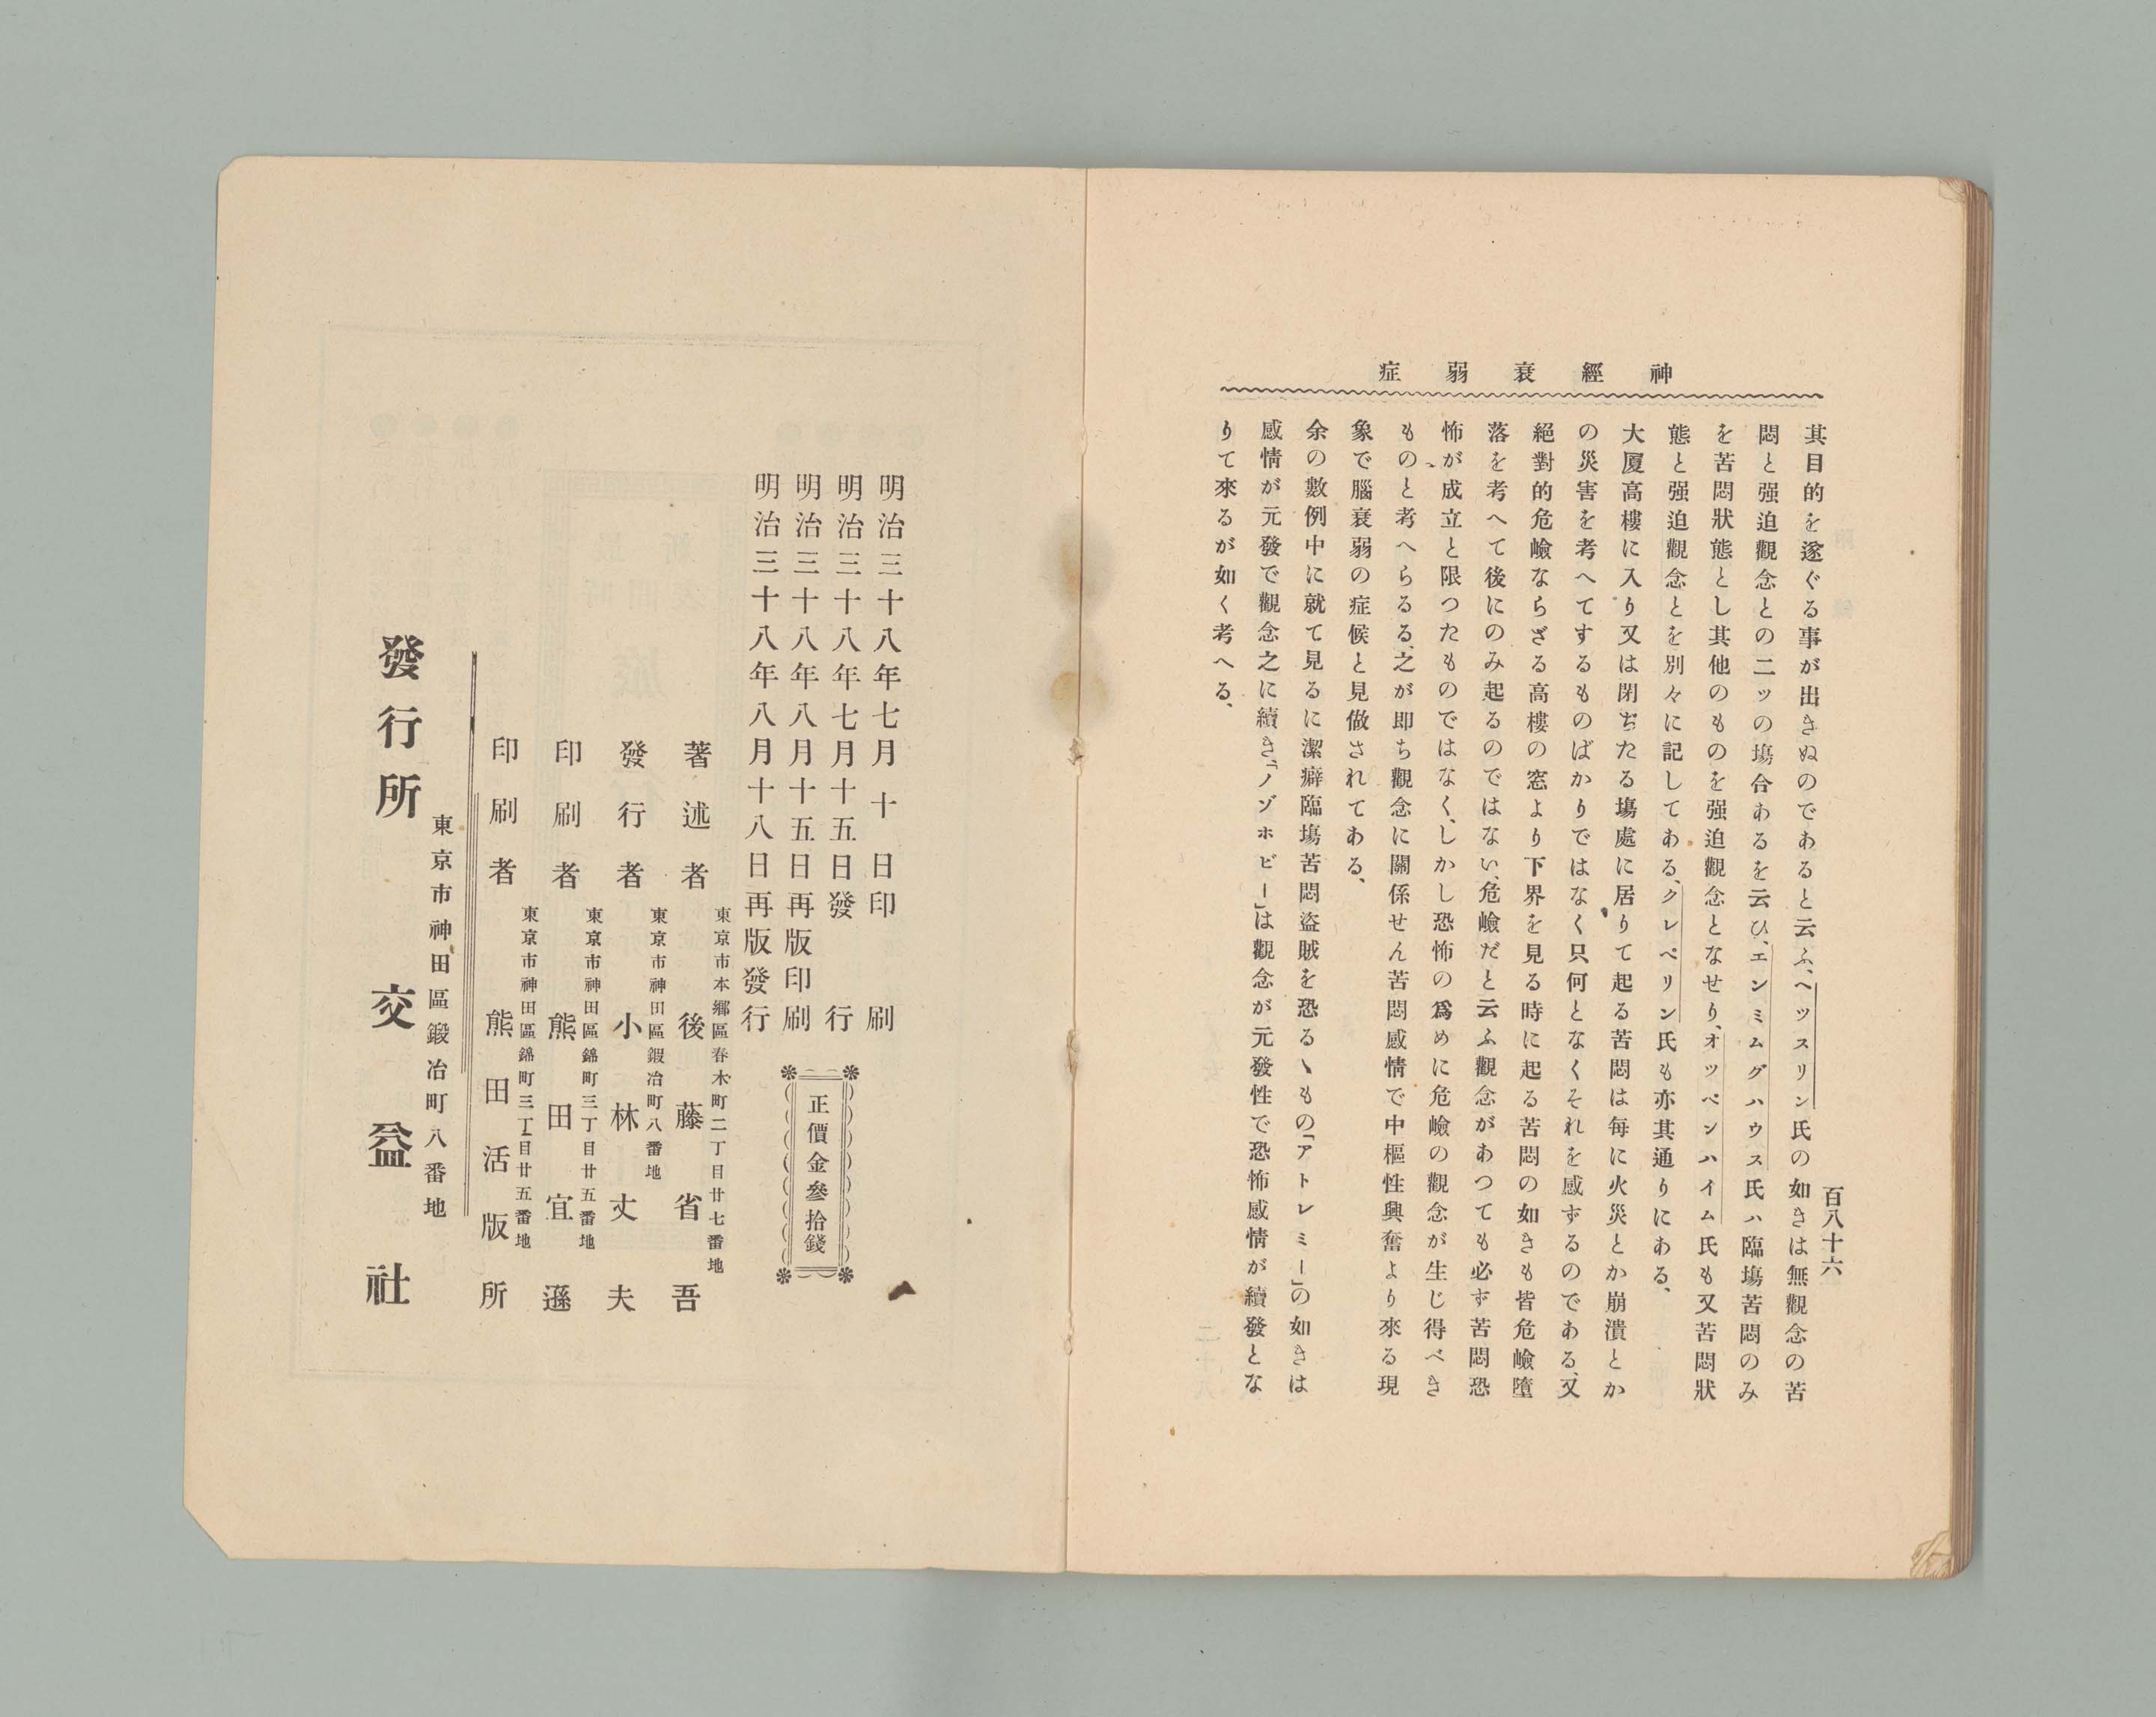 神經衰弱症
百八十六
其目的を遂ぐる事が出きぬのであると云ふ、ヘツスリン氏の如きは無觀念の苦
悶と强迫觀念との二ッの塲合あるを云ひ、エンミムグハウス氏ハ臨塲苦悶のみ
を苦悶狀態とし其他のものを强迫觀念となせり、オツペンハイム氏も又苦悶狀
態と强迫觀念とを別々に記してある、クレペリン氏も亦其通りにある、
大厦高樓に入り又は閉ぢたる塲處に居りて起る苦悶は每に火災とか崩潰とか
の災害を考へてするものばかりではなく只何となくそれを感ずるのである、又
絕對的危嶮ならざる高樓の窓より下界を見る時に起る苦悶の如きも皆危嶮墮
落を考へて後にのみ起るのではない、危嶮だと云ふ觀念があつても必ず苦悶恐
怖が成立と限つたものではなく、しかし恐怖の爲めに危嶮の觀念が生じ得べき
ものと考へらるる、之が即ち觀念に關係せん苦悶感情で中樞性興奮より來る現
象で腦衰弱の症候と見做されてある、
余の數例中に就て見るに潔癖臨塲苦悶盜賊を恐るヽもの「アトレミー」の如きは
感情が元發で觀念之に續き、「ノゾホビー」は觀念が元發性で恐怖感情が續發とな
りて來るが如く考へる、
明治三十八年七月十日印刷
明治三十八年七月十五日發行
明治三十八年八月十五日再版印刷
明治三十八年八月十八日再版發行
正價金參拾錢
東京市本鄕區春木町二丁目廿七番地
著述者 後藤省吾
東京市神田區鍜冶町八番地
發行者 小林丈夫
東京市神田區錦町三丁目廿五番地
印刷者 熊田宜遜
東京市神田區錦町三丁目廿五番地
印刷者 熊田活版所
東京市神田區鍛冶町八番地
發行所 交益社